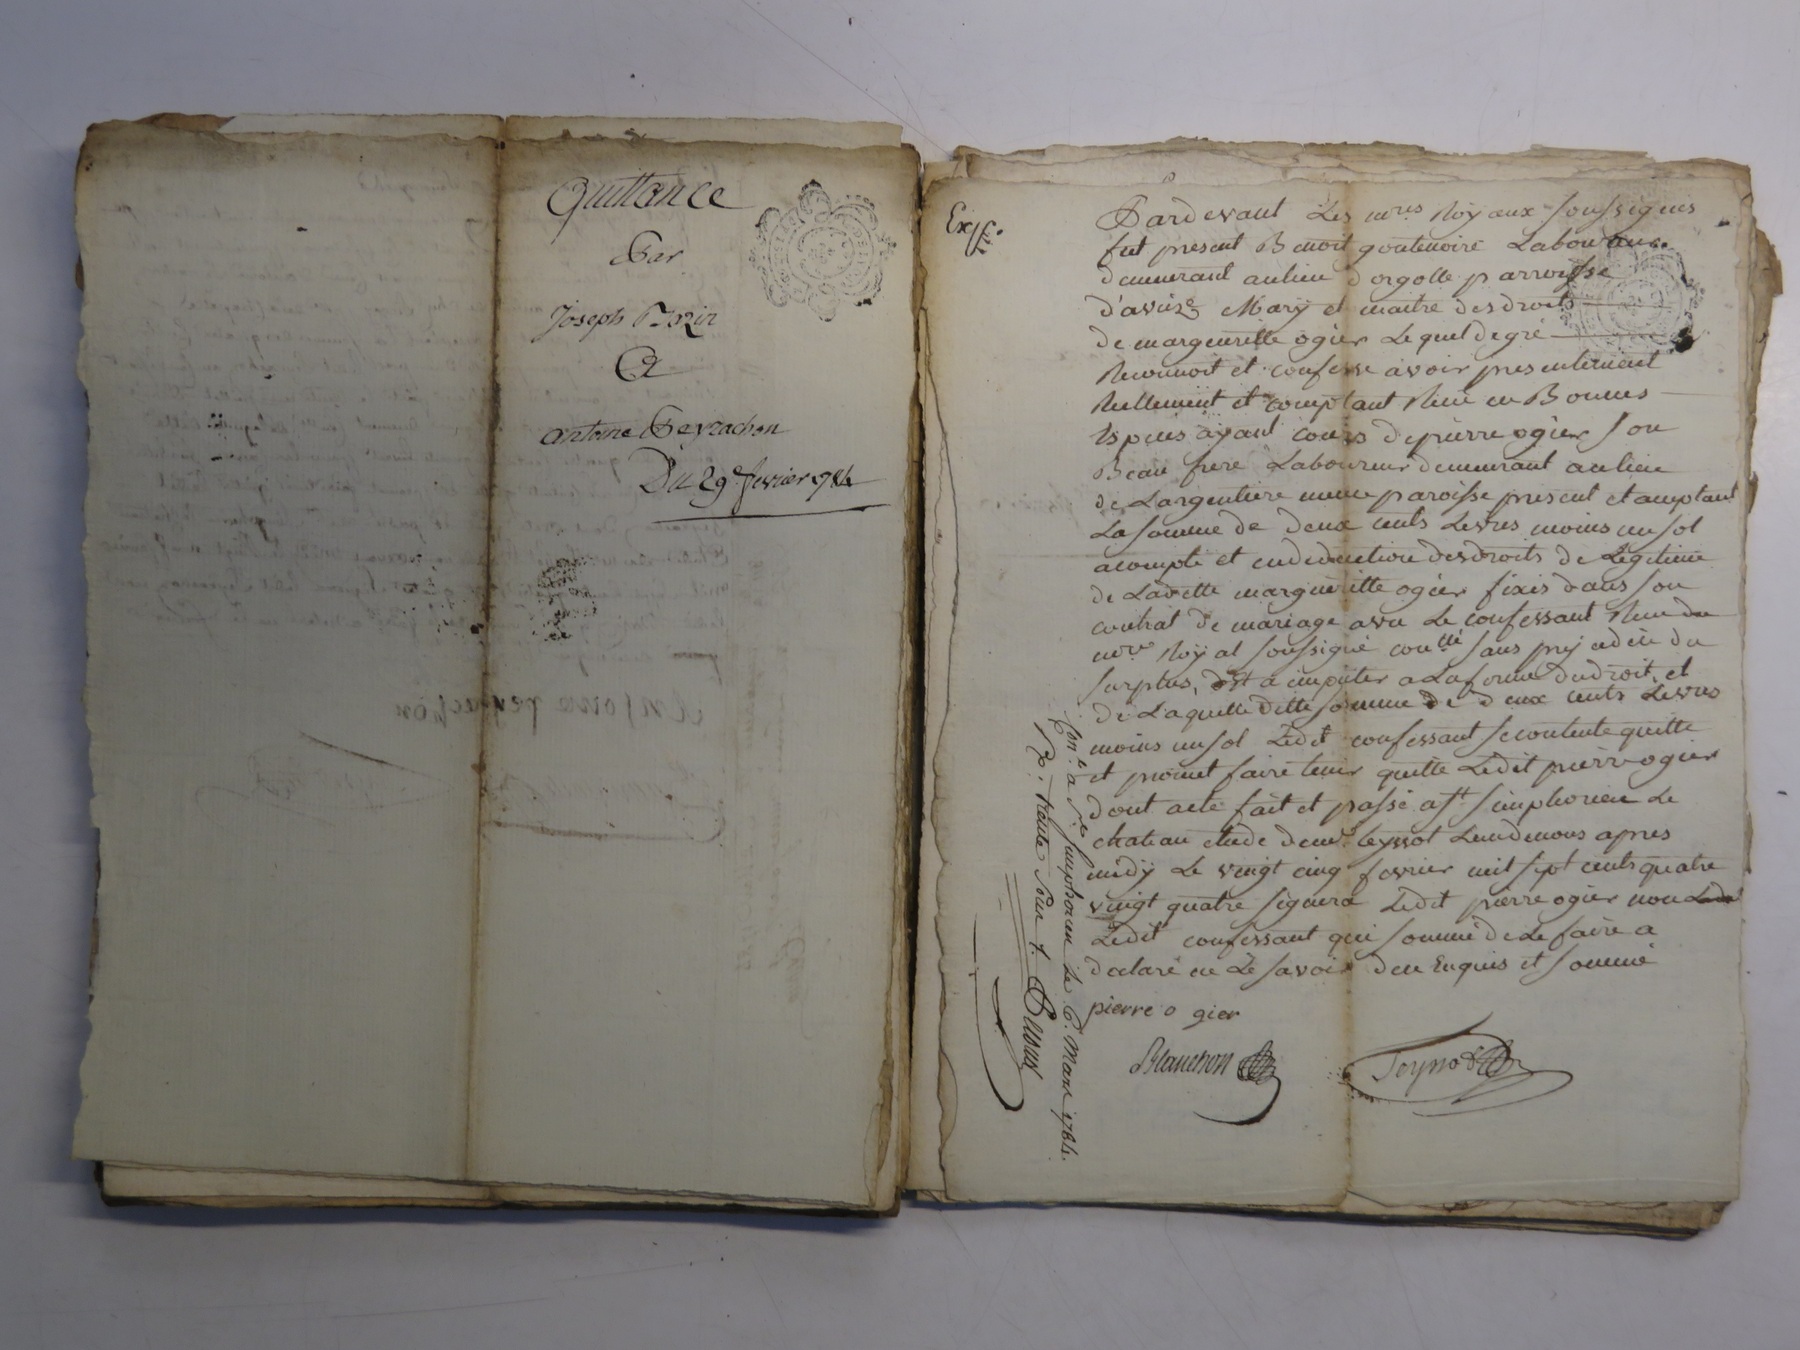 Quittance
Par
Joseph
Et
Antoine Peyrachon
Du 29e fevrier 1784
Pardevant Les nores Royaux soussignés
fut present Benoit goutenoire Laboureur
demeurant au lieu d'orgolle parroisse
d'aveize Mary et maitre des droits
de margueritte ogier Lequel de gré
Reconnoit et confesse avoir presentement
Reellement et comptant Receu en Bonnes
Especes ayant cours de pierre ogier son
Beau frere Laboureur demeurant au lieu
de Largentiere meme paroisse present et aceptant
La somme de deux cents Livres moins un sol
acompte et en deduction des droits de Legitime
de Laditte margueritte ogier fixés dans son
contrat de mariage avec Le confessant Receu du
nore Royal soussigné sans prejudice du
surplus, a imputer a La forme du droit, et
de Laquelle ditte somme de deux cents Livres
moins un sol Ledit confessant se contente quitte
et promet faire tenir quitte Ledit pierre ogier
dont acte fait et passé a st simphorien Le
chateau etude de me teyssot Lundenous apres
midy Le vingt cinq fevrier mil sept cents quatre
vingt quatre signera Ledit pierre ogier non
Ledit confessant qui sommé de Le faire a
declaré ne Le savoir deu Enquis et sommé
pierre o gier
Blanchon
Conlé a st simphorien Le 6. Mars 1784.
Rx. trente sous